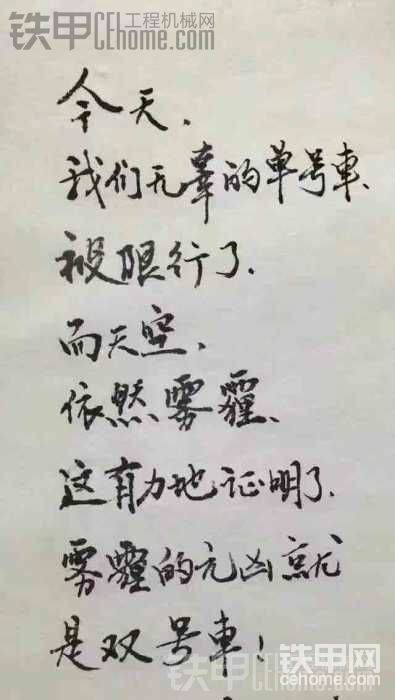 铁甲 工程机械网
CEhome.com
今天、
我们无辜的单号車、
被限行了、
而天空、
依然雾霾、
这有力地证明了、
雾霾的元凶就
是双号車！
铁甲网
cehome.com
铁甲CEhome.com